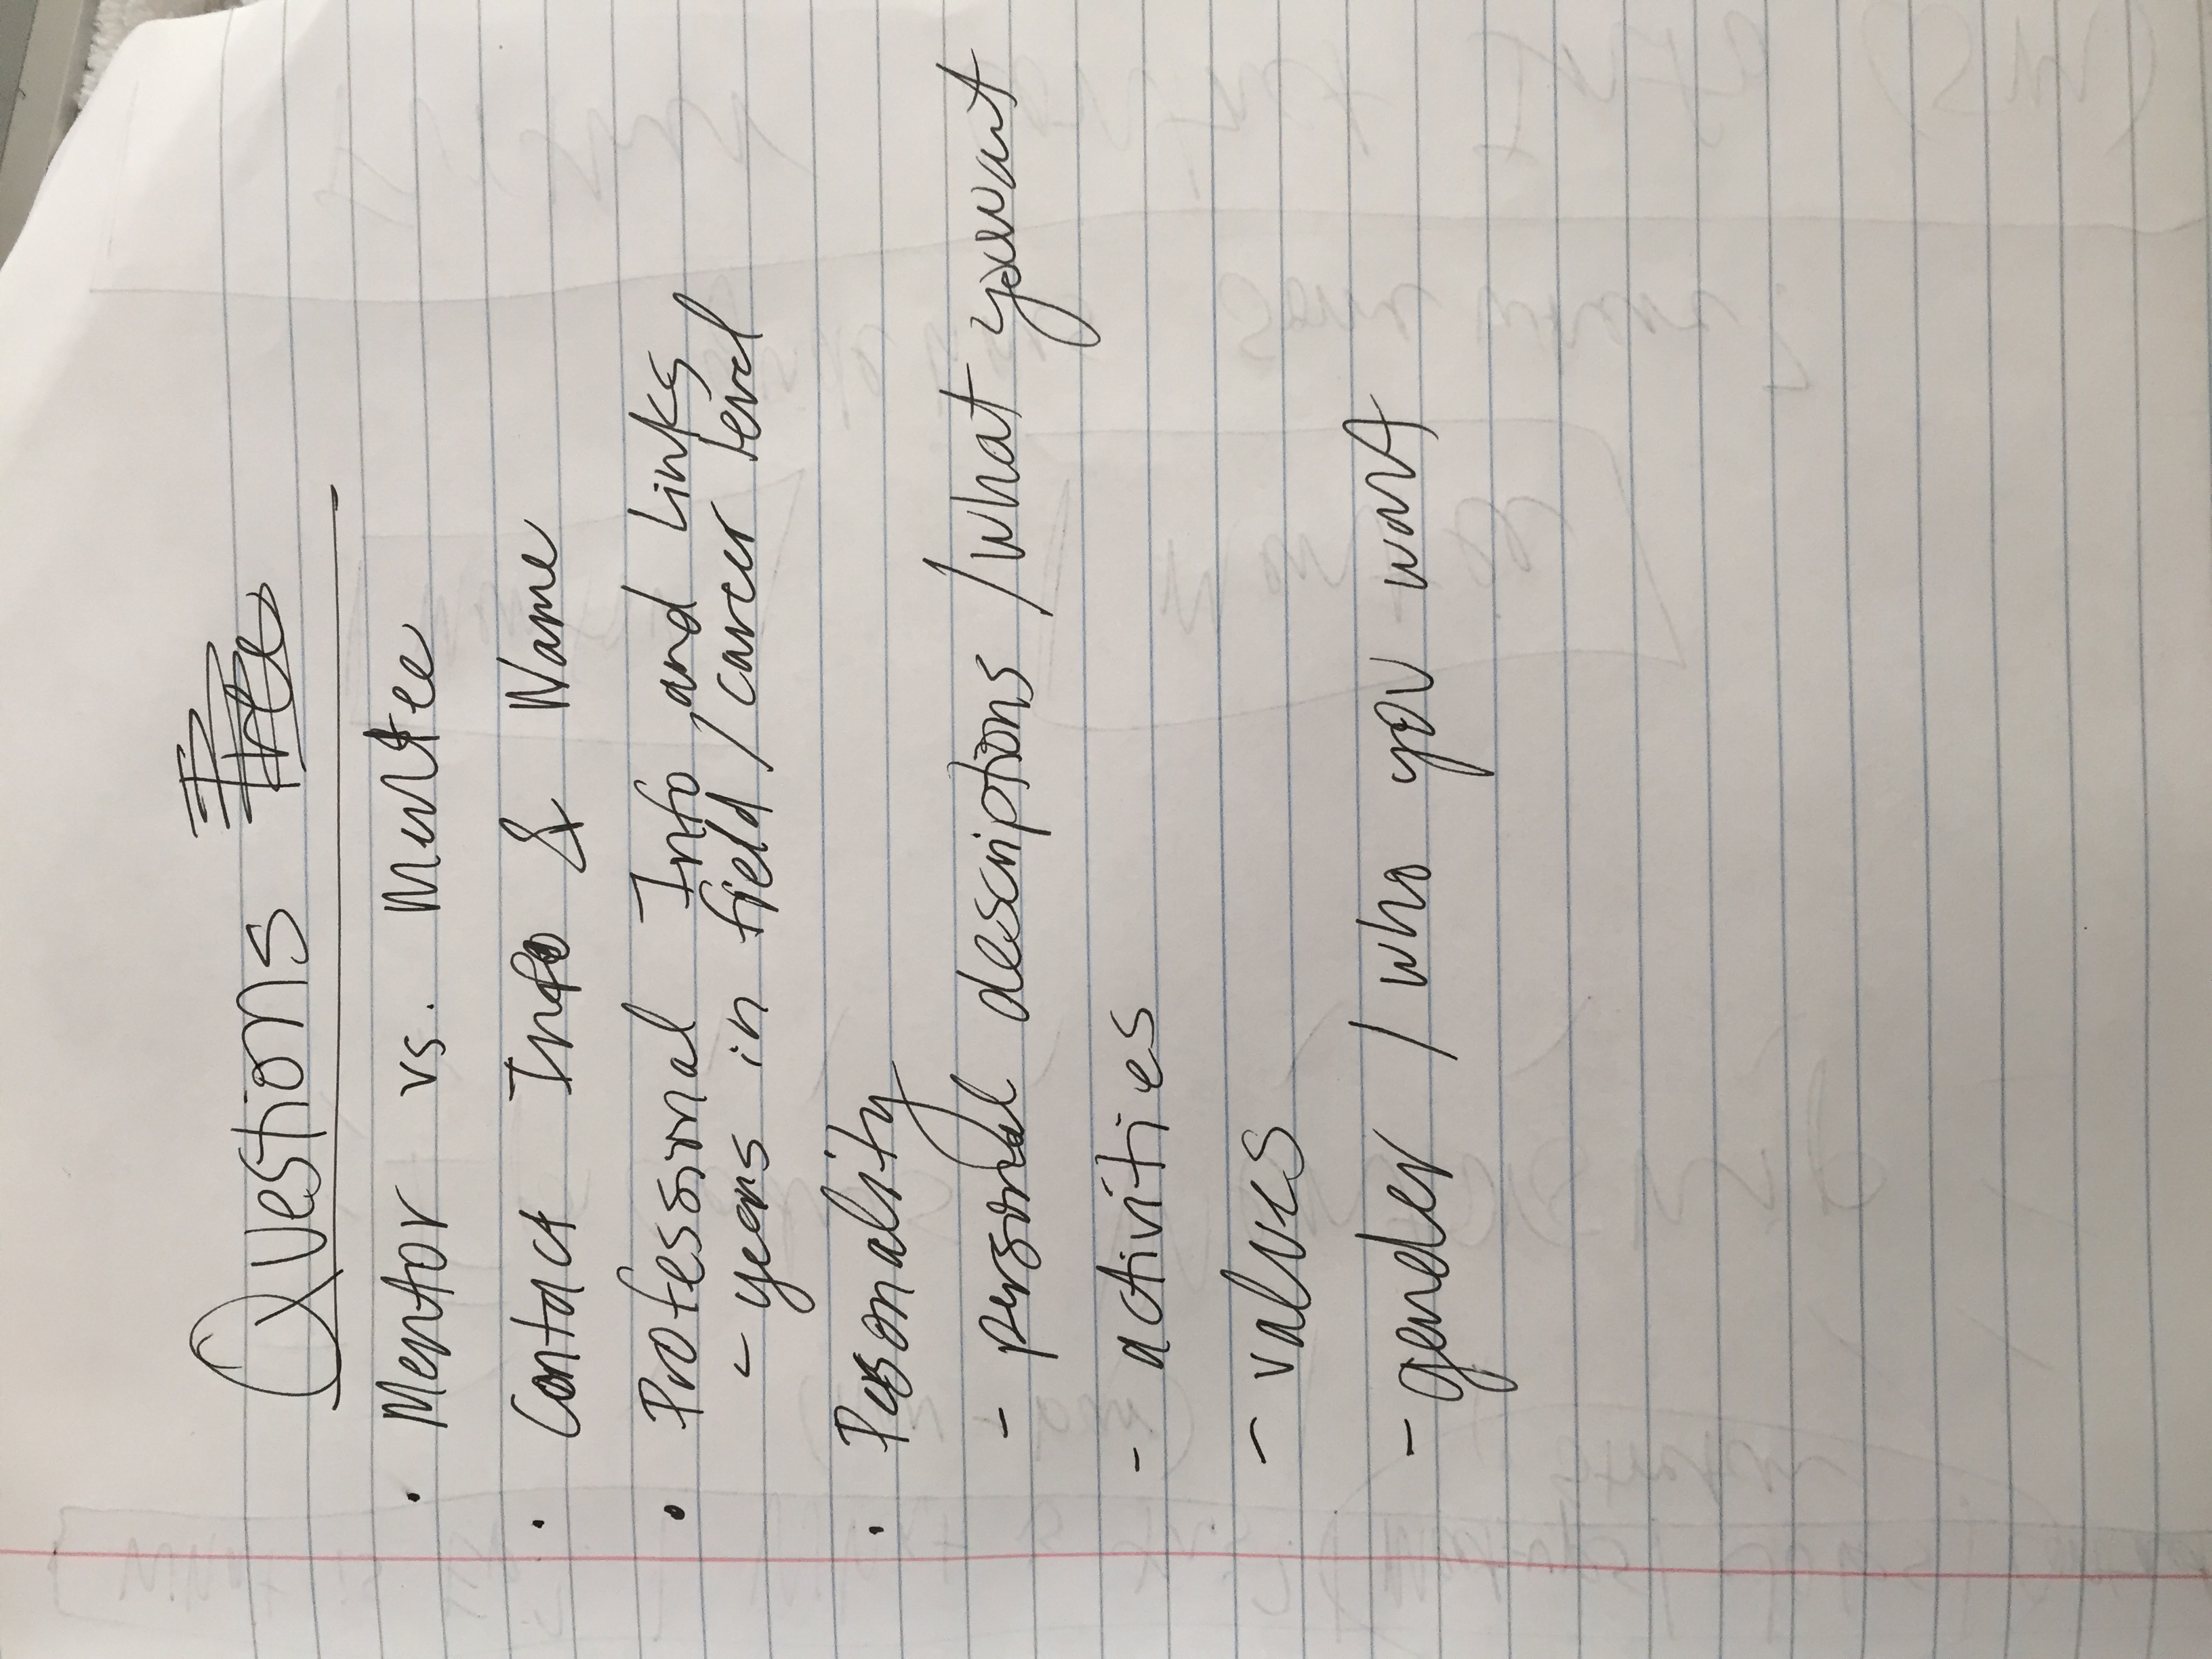 Questions Tree
• Mentor vs. Mentee
• Contact Info & Name
• Professional Info and Links
- years in field / career level
• Personality
- personal descriptions / what you want
- activities
- values
- gender / who you want